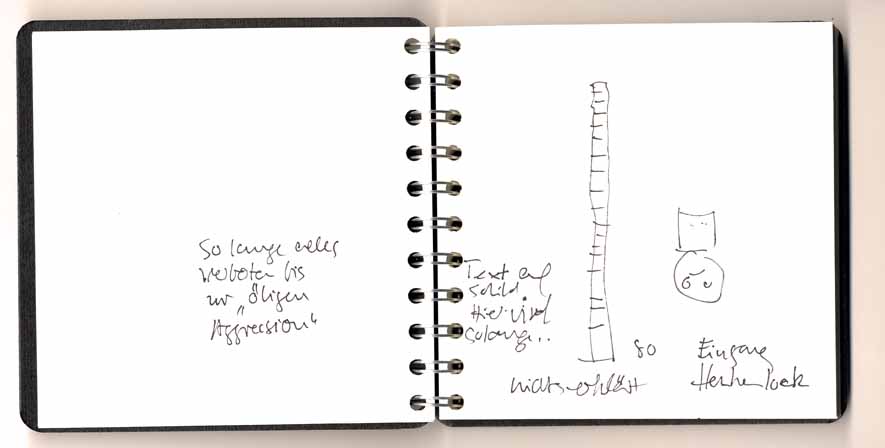 So lange alles
verboten bis
zur „öligen
Aggression“
Text auf
Schild
Hier wird
solange..
80
nichts erklärt
Eingang